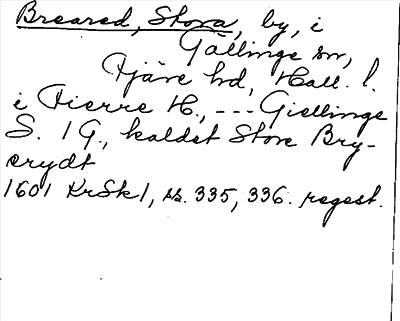 Breared, Stora, by, i
Gällinge sn,
Fjäre hd, Hall. l.
i Fierre H., --- Giellinge
S. 1 G., kaldet Store Bry-
erydt
1601 KrSk1, ss. 335, 336. regest.